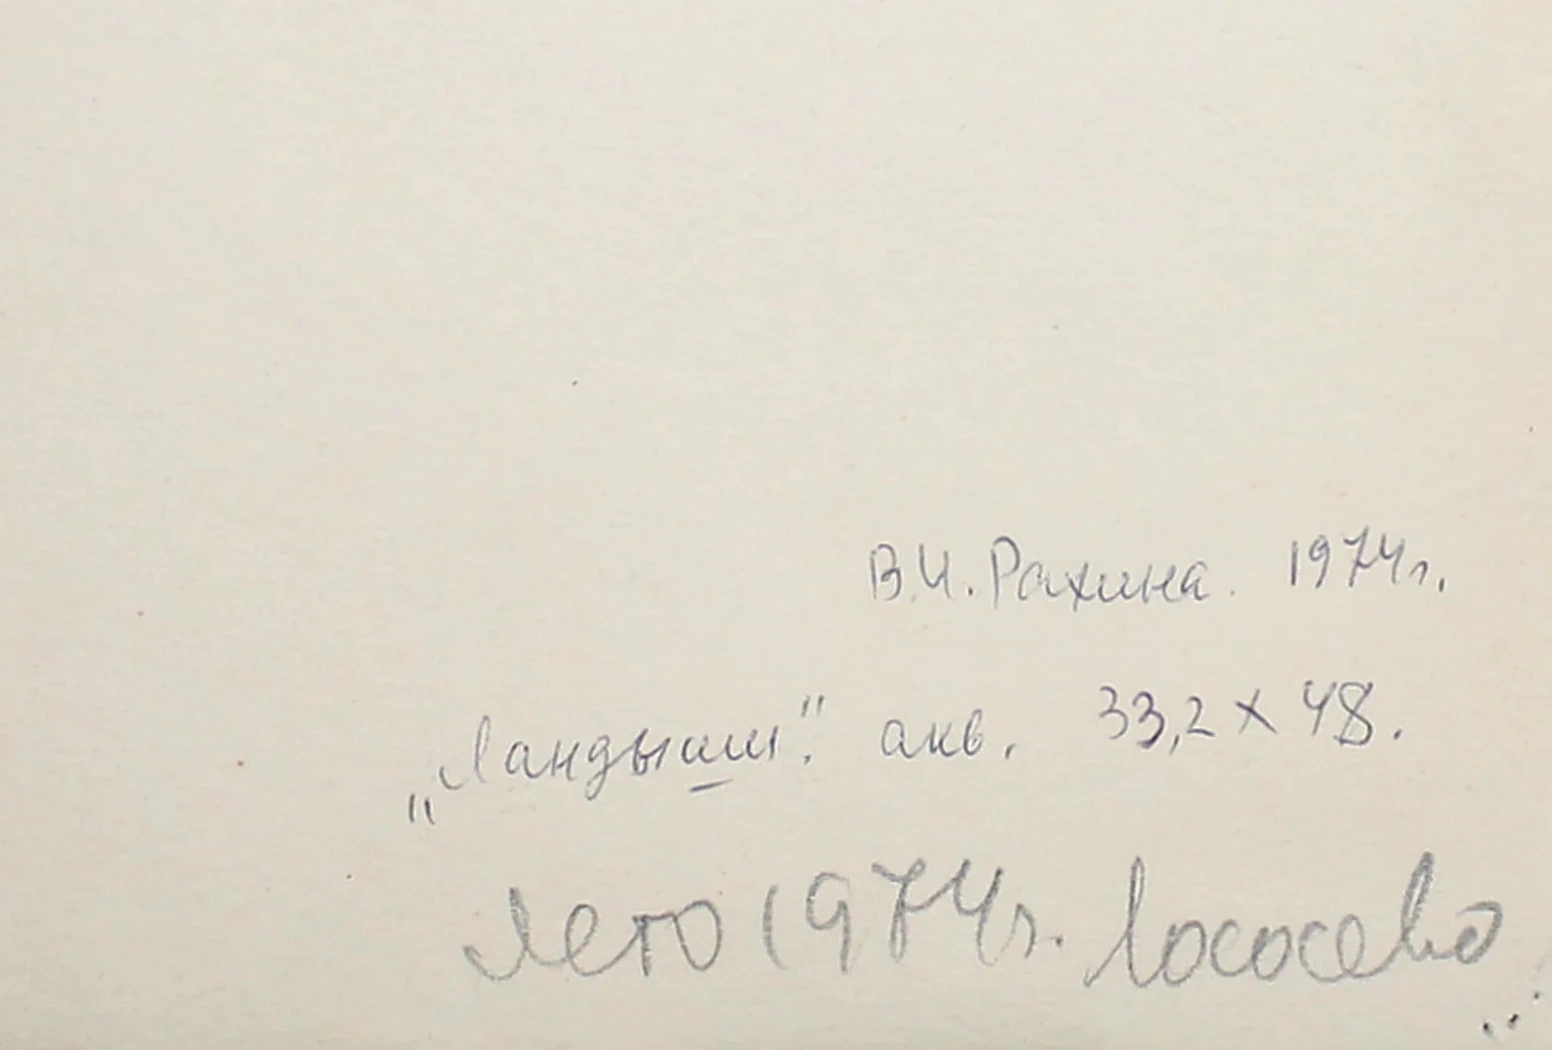 В.И. Рахина. 1974г.
„Ландыши". акв. 33,2 х 48.
Лето 1974г. Лососево